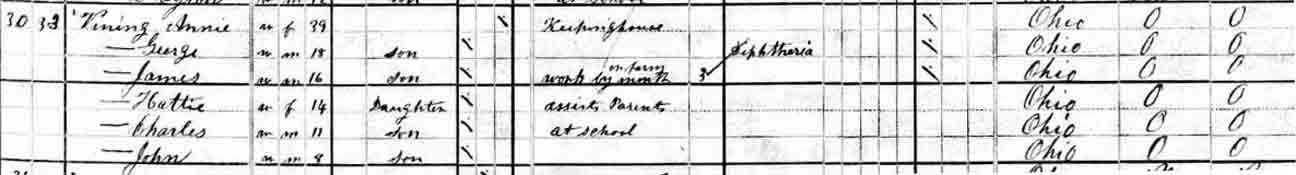 30 33 Vining Annie w f 39 / Keeping house / / Ohio O O
— George w m 18 son / Diphtheria / / Ohio O O
— James w m 16 son / work by month on farm 3 / / Ohio O O
— Hattie w f 14 Daughter / assists Parents Ohio O O
— Charles w m 11 son / at school Ohio O O
— John w m 8 son / Ohio O O